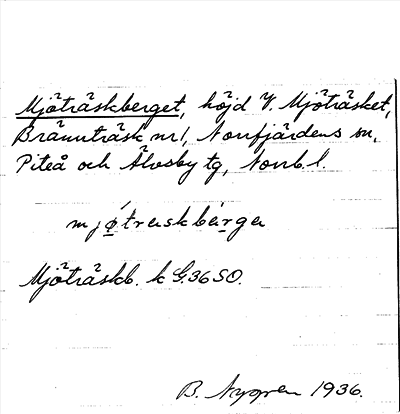 Mjöträskberget, höjd V. Mjöträsket,
Brännträsk nr 1, Norrfjärdens sn,
Piteå och Älvsby tg, Norrb. l.
mjǿtrɛskbærgə
Mjöträskb. k G.36 SO.
B. Nygren 1936.